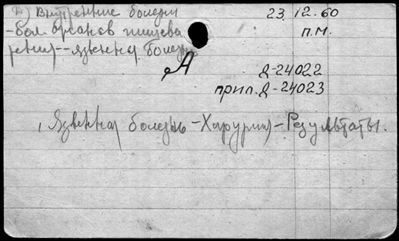 Внутренние болезни 23.12.60
-бол. органов пищева п.м.
рения--язвенная болезнь
А Д-24022
прил. Д-24023
Язвенная болезнь-Хирургия-Результаты.